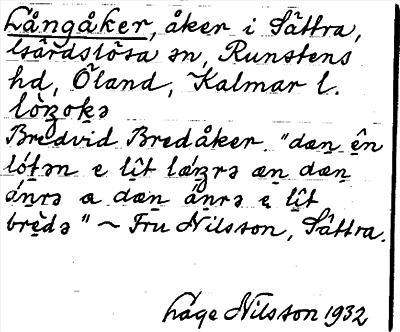 Långåker, åker i Sättra,
Gärdslösa sn, Runstens
hd, Öland, Kalmar l.
lòŋo̱kə
Bredvid Bredåker. "dæn̲ ên
lótən e lît lǽŋrə æn̲ dæn̲
án̲rə a dæn̲ án̲rə e̱ lît
bre̱də" ~ Fru Nilsson, Sättra.
Låge Nilsson 1932